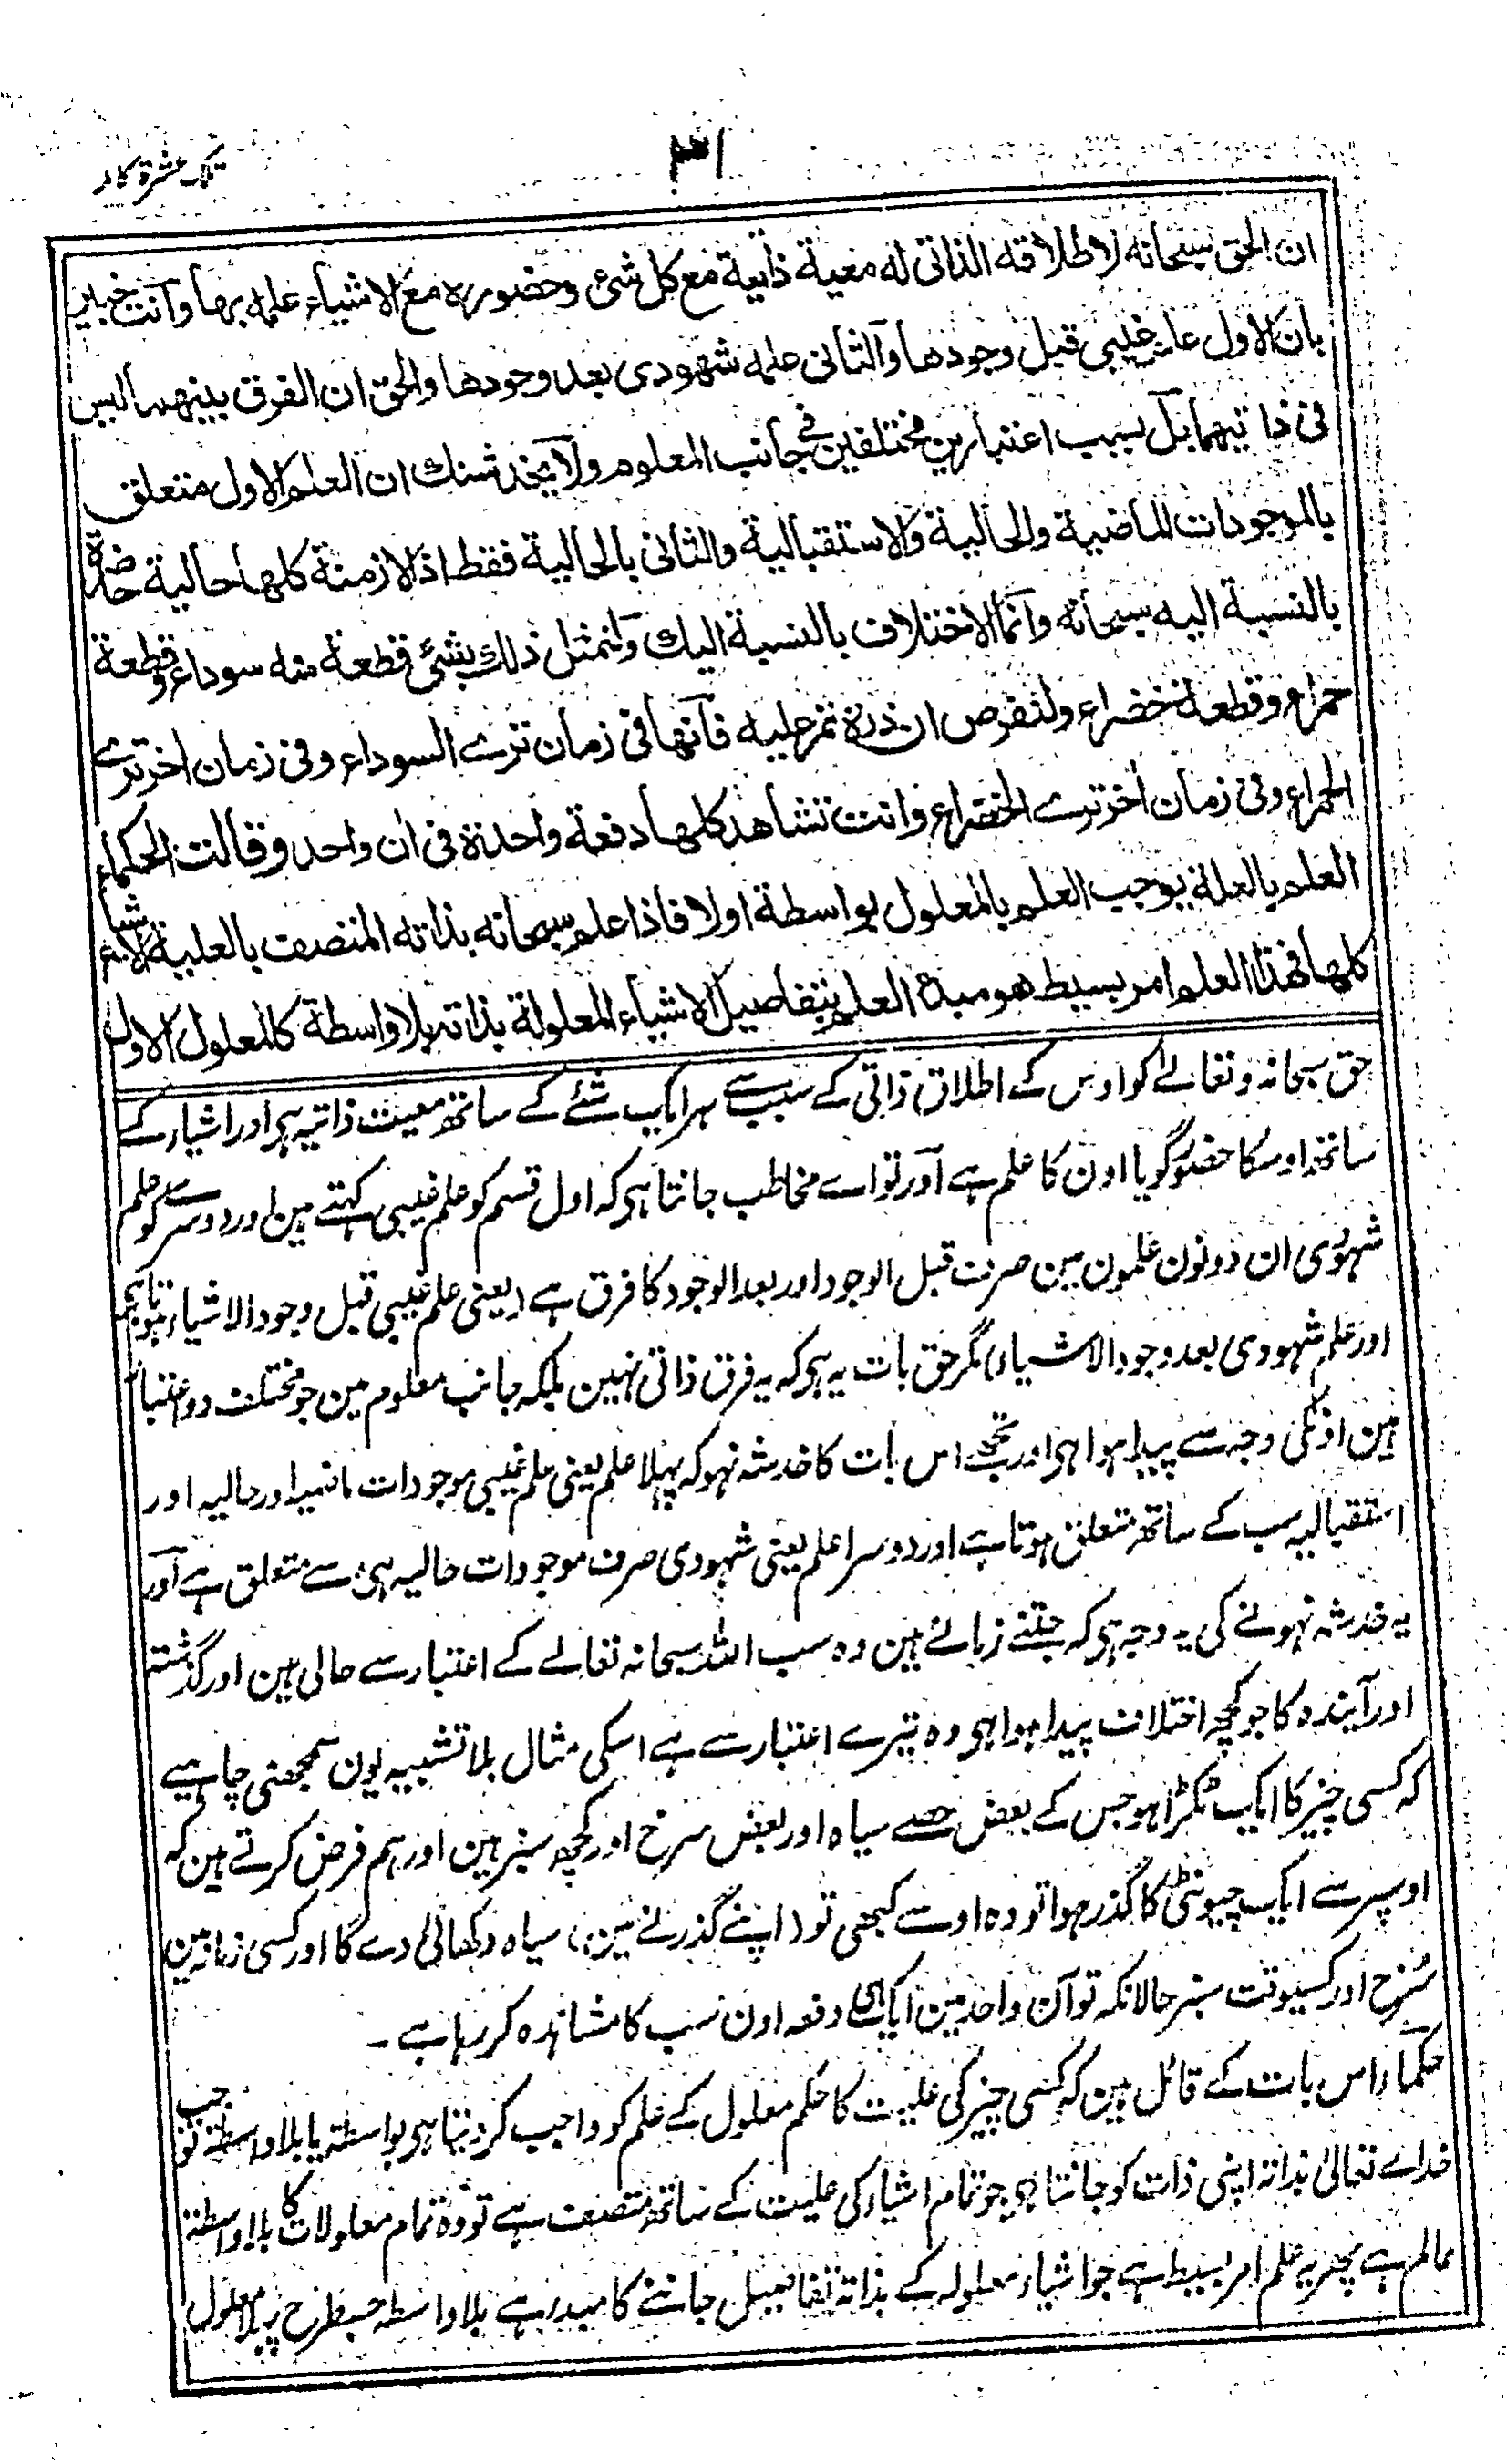 ۳۱
تلک عشرة کاملہ
ان الحق سبحانه لاطلاقه الذاتی له معیة ذاتیة مع کل شئ وحضوره مع الاشیاء علمه بها وانت خبیر
بان الاول علم غیبی قبل وجودها والثانی علمه شهودی بعد وجودها والحق ان الفرق بینهما لیس
فی ذاتیهما بل بسبب اعتبارین مختلفین فی جانب المعلوم ولا یخدشنك ان العلم الاول متعلق
بالموجودات الماضیة والحالیة والاستقبالیة والثانی بالحالیة فقط اذ الازمنة کلها حالیة حاضرة
بالنسبة الیه سبحانه وانما الاختلاف بالنسبة الیك ولنمثل ذلك بشئ قطعة منه سوداء وقطعة
حمراء وقطعة خضراء ولنفرض ان ذرة تمر علیه فانها فی زمان ترے السوداء وفی زمان اخر ترے
الحمراء وفی زمان اخر ترے الخضراء وانت تشاهد کلها دفعة واحدة فی ان واحد وقالت الحکماء
العلم بالعلة یوجب العلم بالمعلول بواسطة اولا فاذا علم سبحانه بذاته المتصف بالعلیة الاشیاء
کلها فهذا العلم امر بسیط هو مبدء العلم بتفاصیل الاشیاء المعلولة بذاته بلا واسطة کالمعلول الاول
حق سبحانہ وتعالےٰ کو اوس کے اطلاق ذاتی کے سبب سے ہر ایک شئے کے ساتھ معیت ذاتیہ ہی اور اشیاء کے
ساتھ اوسکا حضور گویا اون کا علم ہے اور تو اے مخاطب جانتا ہی کہ اول قسم کو علم غیبی کہتے ہین اور دوسرے کو علم
شہودی ان دونون علمون مین صرف قبل الوجود اور بعد الوجود کا فرق ہے (یعنی علم غیبی قبل وجود الاشیاء ہوتا ہی
اور علم شہودی بعد وجود الاشیاء) مگر حق بات یہ ہی کہ یہ فرق ذاتی نہین بلکہ جانب معلوم مین جو مختلف دو اعتبار
ہین اونکی وجہ سے پیدا ہوا ہی اور تجھے اس بات کا خدشہ نہو کہ پہلا علم یعنی علم غیبی موجودات ماضیہ اور حالیہ اور
استقبالیہ سب کے ساتھ متعلق ہوتا ہے اور دوسرا علم یعنی شہودی صرف موجودات حالیہ ہی سے متعلق ہے اور
یہ خدشہ نہونے کی یہ وجہ ہی کہ جتنے زمانے ہین وہ سب اللہ سبحانہ تعالےٰ کے اعتبار سے حالی ہین اور گذشتہ
اور آیندہ کا جو کچھ اختلاف پیدا ہوا ہی وہ تیرے اعتبار سے ہے اسکی مثال بلا تشبیہ یون سمجھنی چاہیے
کہ کسی چیز کا ایک ٹکڑا ہو جس کے بعض حصے سیاہ اور بعض سرخ اور کچھ سبز ہین اور ہم فرض کرتے ہین کہ
اوسپر سے ایک چیونٹی کا گذر ہوا تو وہ اوسے کبھی تو (اپنے گذرنے مین) سیاہ دکھائی دے گا اور کسی زمانہ مین
سُرخ اور کسیوقت سبز حالانکہ تو آن واحد مین ایک ہی دفعہ اون سب کا مشاہدہ کر رہا ہے ۔
حکماء اس بات کے قائل ہین کہ کسی چیز کی علیت کا حکم معلول کے علم کو واجب کر دیتا ہی بواسطہ یا بلا واسطہ تو جب
خداے تعالیٰ بذاتہ اپنی ذات کو جانتا ہی جو تمام اشیاء کی علیت کے ساتھ متصف ہے تو وہ تمام معلولات کا بلا واسطہ
عالم ہے پھر یہ علم امر بسیط ہے جو اشیاء معلولہ کے بذاتہ تفاصیل جاننے کا مبدء ہے بلا واسطہ جسطرح پہلا معلول